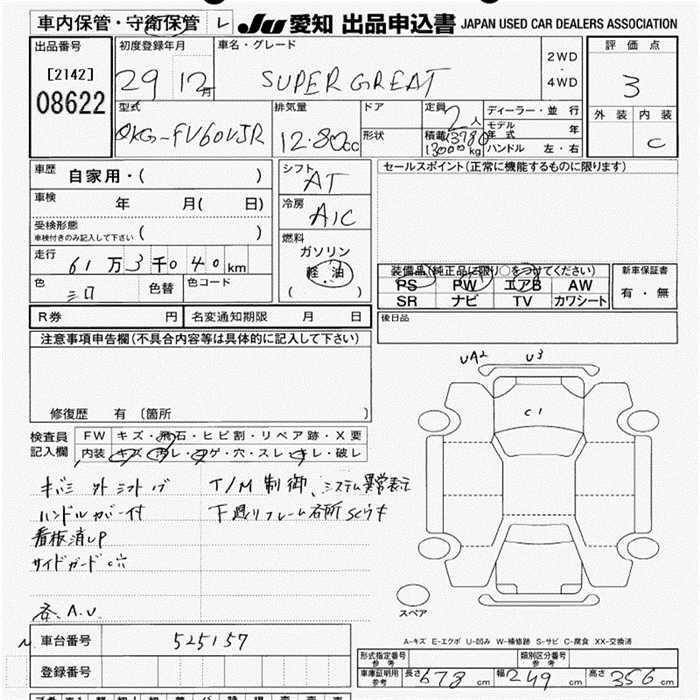 車内保管・守衛保管 レ JU 愛知 出品申込書 JAPAN USED CAR DEALERS ASSOCIATION
出品番号 初度登録年月 車名・グレード 2WD ・ 4WD 評価点
[2142] 08622 29 12月 SUPER GREAT 3
型式 排気量 ドア 定員 2人 ディーラー・並行 外装 内装
QKG-FV60VJR 12.80cc 形状 積載 13780 13000kg モデル年式 年 ハンドル 左・右 C
車歴 自家用・( ) シフト AT セールスポイント(正常に機能するものに限ります)
車検 年 月( 日) 冷房 A/C
受検形態 車検付きのみ記入して下さい ( ) 燃料 ガソリン
走行 61万3千040km 軽油 ( )
装備品(純正品に限り○をつけてください) 新車保証書
PS PW エアB AW 有・無
SR ナビ TV カワシート
色 シロ 色替 色コード
後日品
R券 円 名変通知期限 月 日
注意事項申告欄(不具合内容等は具体的に記入して下さい)
UA2 U3
C1
修復歴 有 (箇所 )
検査員記入欄 FW キズ・飛石・ヒビ割・リペア跡・X要
内装 キズ・汚レ・コゲ・穴・スレ・キレ・破レ
T/M制御、システム異常表示
ハンドルカバー付
看板消しP
サイドガード
スペア
A-キズ E-エクボ U-凹み W-補修跡 S-サビ C-腐食 XX-交換済
車台番号 525157
登録番号
形式指定番号 参考 類別区分番号 参考
車庫証明用 参考 長さ 678cm 幅 249cm 高さ 356cm